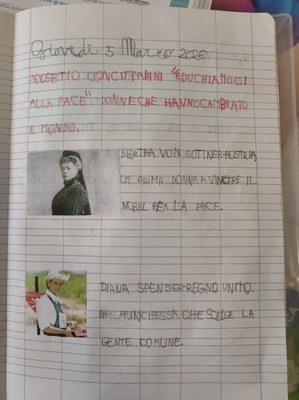 Giovedì 5 Marzo 2026
PROGETTO CONCITTADINI "EDUCHIAMOCI
ALLA PACE" DONNE CHE HANNO CAMBIATO
IL MONDO.
BERTHA VON SUTTNER-AUSTRIA,
LA PRIMA DONNA A VINCERE IL
NOBEL PER LA PACE.
DIANA SPENSER-REGNO UNITO.
PRINCIPESSA CHE SCELSE LA
GENTE COMUNE.